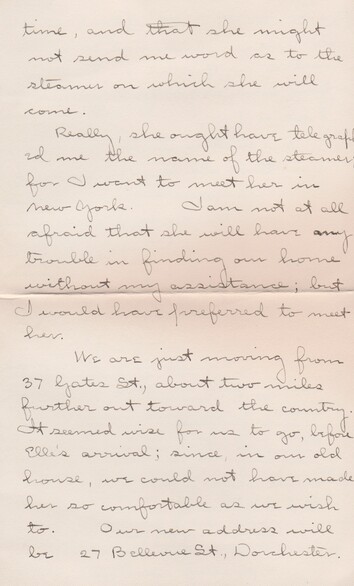 time, and that she might
not send me word as to the
steamer on which she will
come.
Really, she ought have telegraph
ed me the name of the steamer
for I want to meet her in
New York. I am not at all
afraid that she will have any
trouble in finding our home
without my assistance; but
I would have preferred to meet
her.
We are just moving from
37 Gates St., about two miles
further out toward the country.
It seemed wise for us to go, before
Elle's arrival; since, in our old
house, we could not have made
her so comfortable as we wish
to. Our new address will
be 27 Bellevue St., Dorchester.